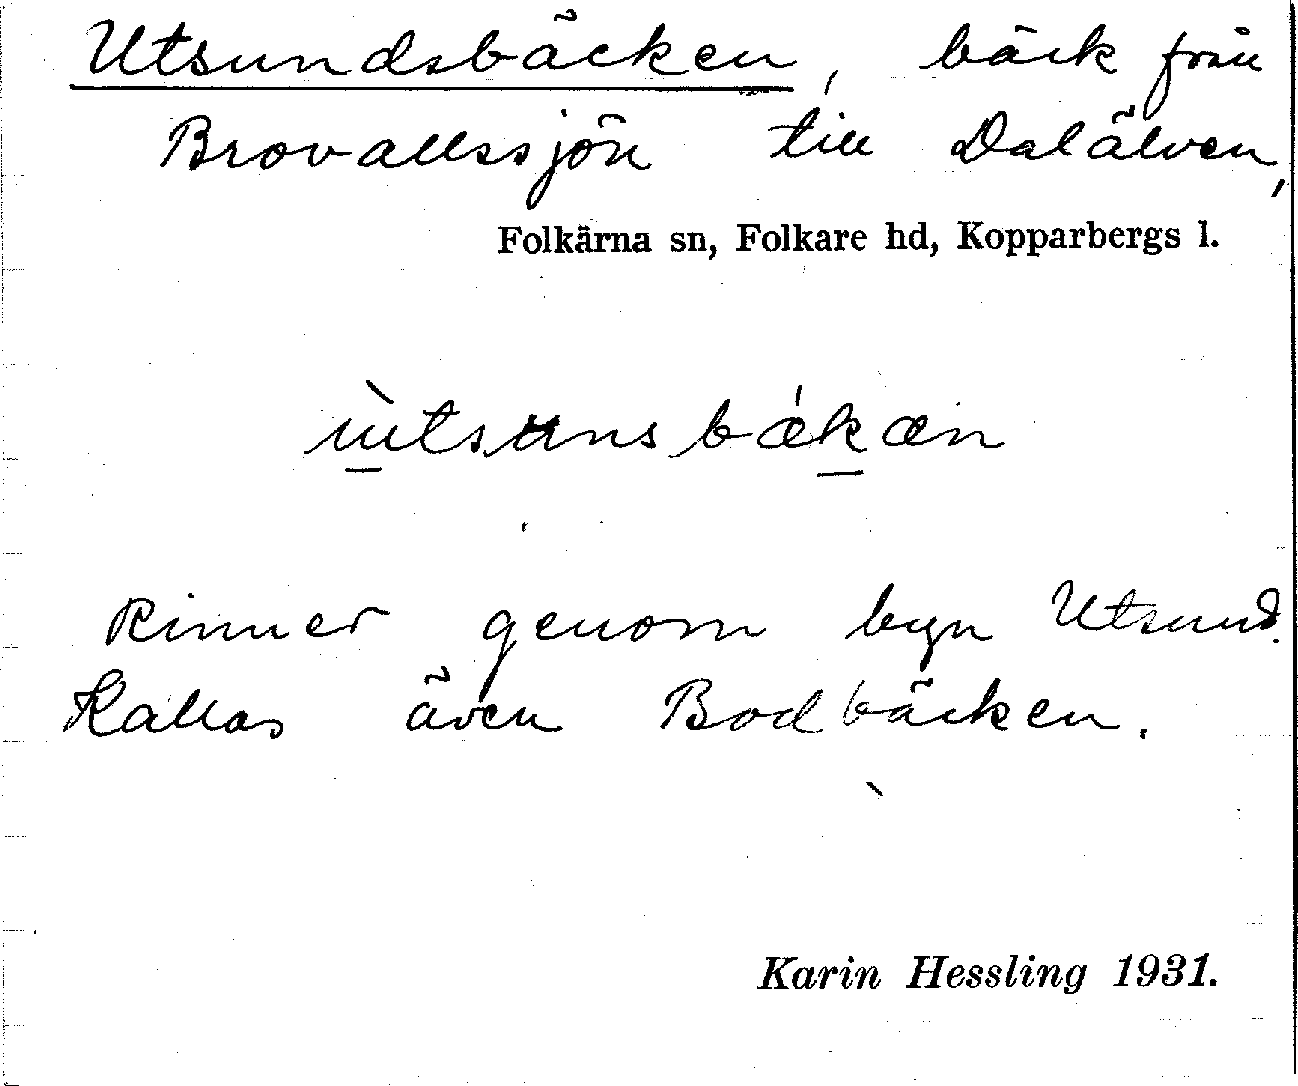 Utsundsbäcken, bäck från
Brovallssjön till Dalälven,
Folkärna sn, Folkare hd, Kopparbergs l.
ùtsunsbǽkæn
Rinner genom byn Utsund.
Kallas även Bodbäcken.
Karin Hessling 1931.